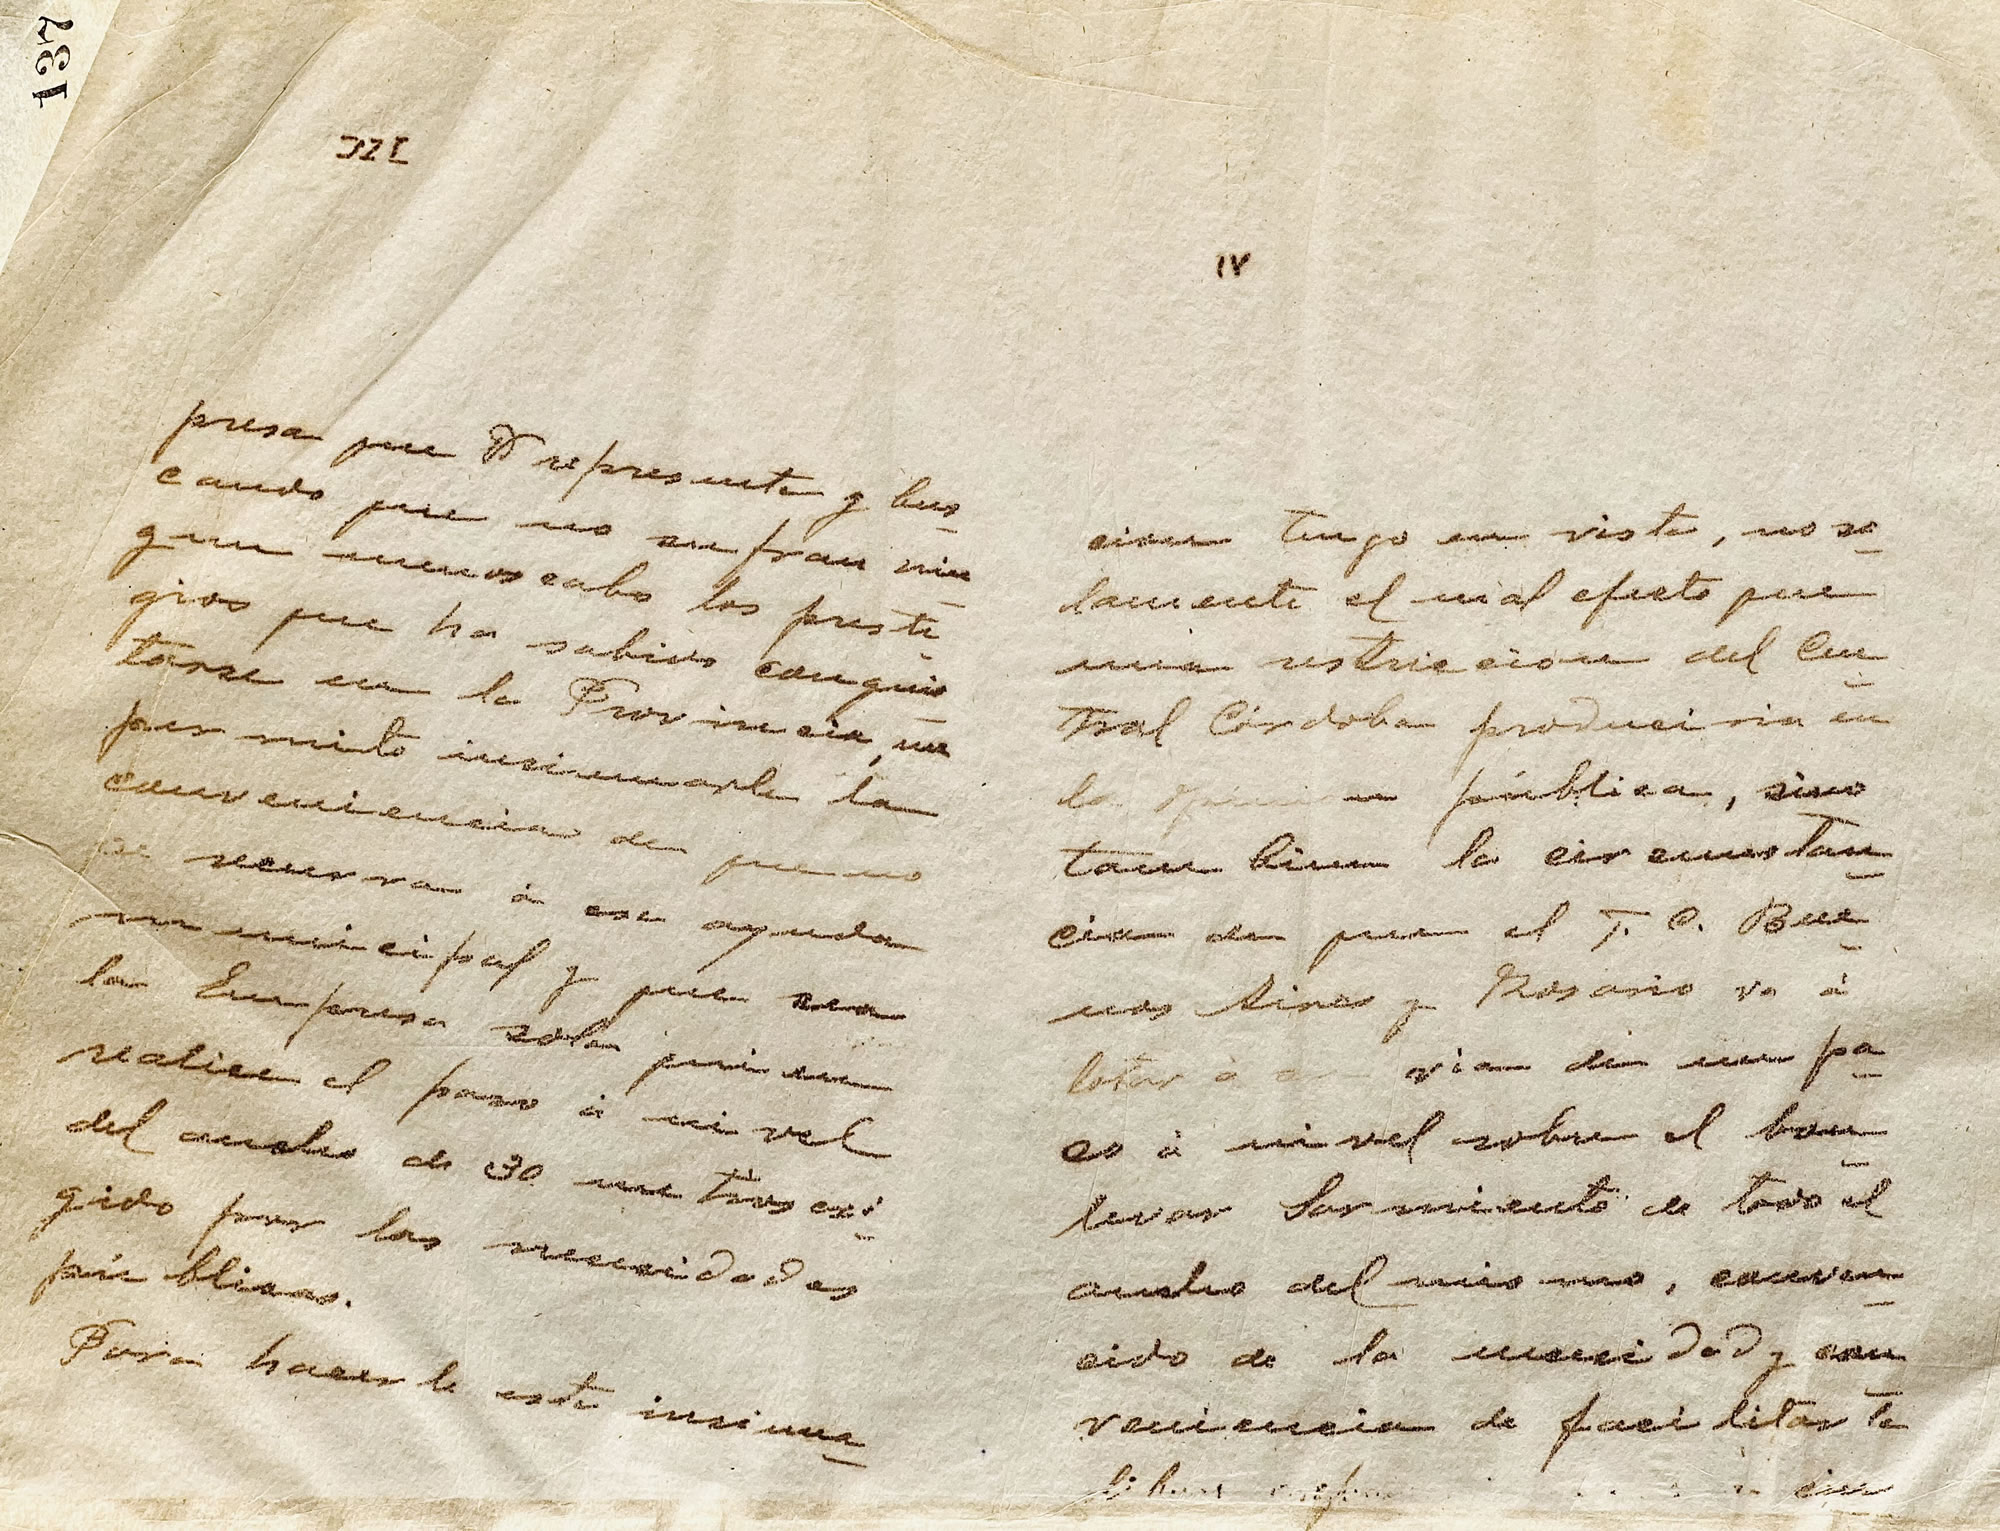 137
III
presa que V represente y bus
cando que no sufran nin
gun menoscabo los presti
gios que ha sabido conquis
tarse en la Provincia, me
permito insinuarle la
conveniencia de que no
se recurra á esa ayuda
municipal y que sea
la Empresa sola quien
realice el paso á nivel
del ancho de 30 metros exi
gido por las necesidades
públicas.
Para hacerle esta insinua
IV
cion tengo en vista, no so
lamente el mal efecto que
una restriccion del Cen
tral Córdoba produciria en
la opinion pública, sino
tambien la circunstan
cia de que el F. C. Bue
nos Aires y Rosario va á
dotar á su via de un pa
so á nivel sobre el bou
levar Sarmiento de todo el
ancho del mismo, conven
cido de la necesidad y con
veniencia de facilitar la
libre